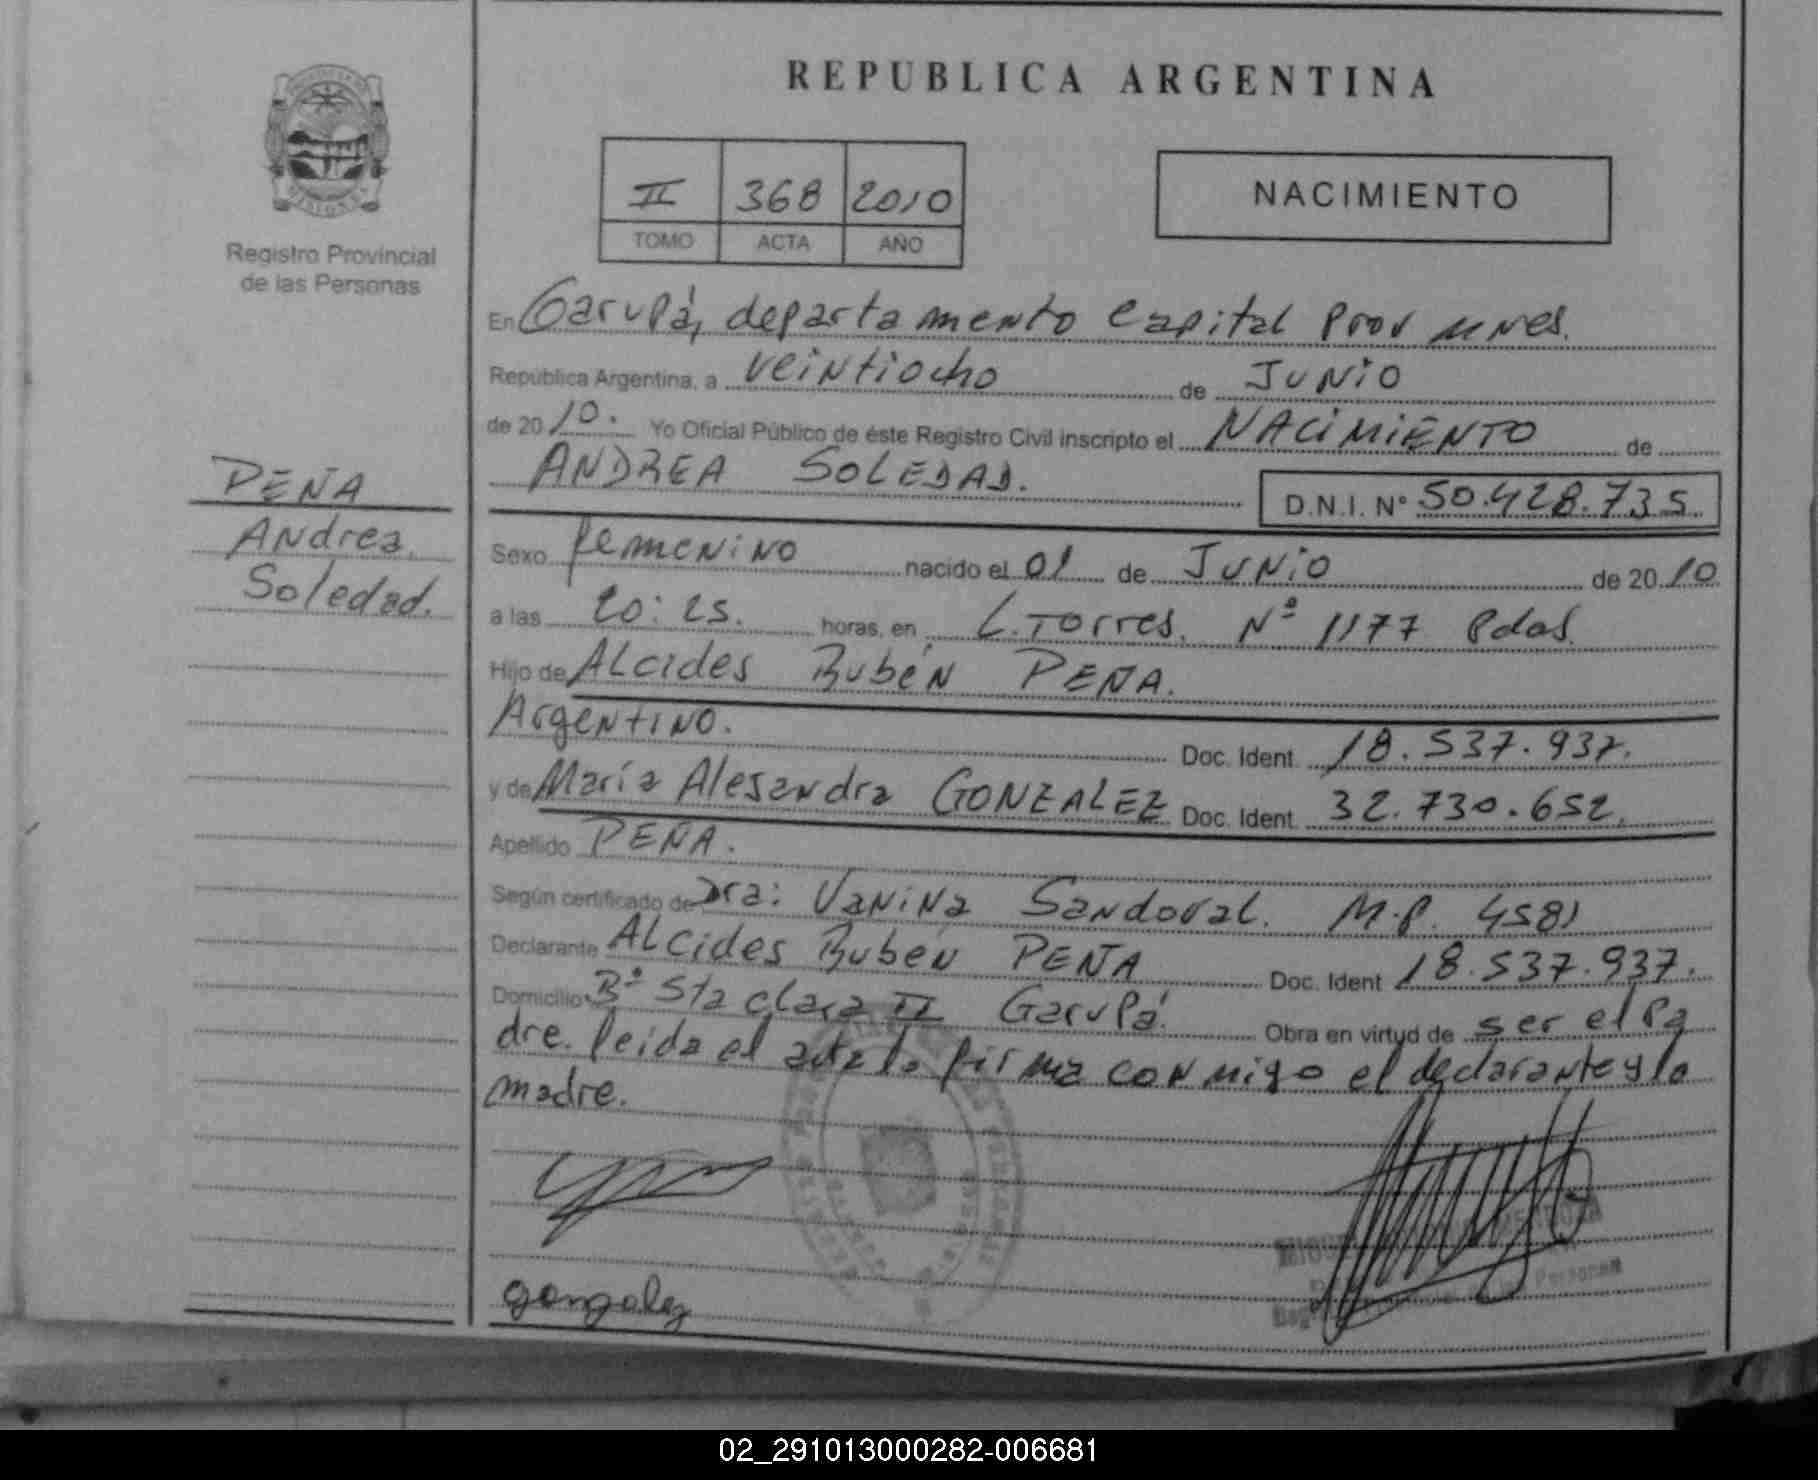 REPUBLICA ARGENTINA
II 368 2010
TOMO ACTA AÑO
NACIMIENTO
Registro Provincial
de las Personas
PEÑA
Andrea
Soledad.
En Garupá, departamento Capital Prov Mnes.
República Argentina, a veintiocho de JUNIO
de 2010. Yo Oficial Público de éste Registro Civil inscripto el NACIMIENTO de
ANDREA SOLEDAD.
D.N.I. N° 50.428.735
Sexo femenino nacido el 01 de JUNIO de 2010
a las 20:25. horas, en L. Torres. Nº 1177 Pdas.
Hijo de ALcides Rubén PEÑA.
Argentino. Doc. Ident. 18.537.937.
y de María Alejandra GONZALEZ Doc. Ident. 32.730.652.
Apellido PEÑA.
Según certificado de Dra: Vanina Sandoval. M.P. 4581
Declarante ALcides Rubén PEÑA Doc. Ident 18.537.937.
Domicilio Bº Sta Clara II Garupá. Obra en virtud de ser el pa
dre. leida el acta la firma conmigo el declarante y la
madre.
gonzalez
MENDOZA
Personas
02_291013000282-006681